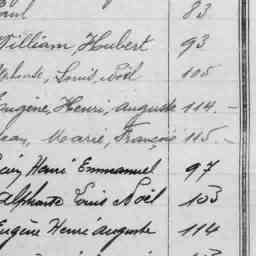 83
William, Houbert 93
Alphonse, Louis, Noël 105
Eugène, Henri, Auguste 114. -
Jean, Marie, François 115. -
Henri Emmanuel 97
Alphonse Louis Noël 103
Eugène Henri Auguste 114